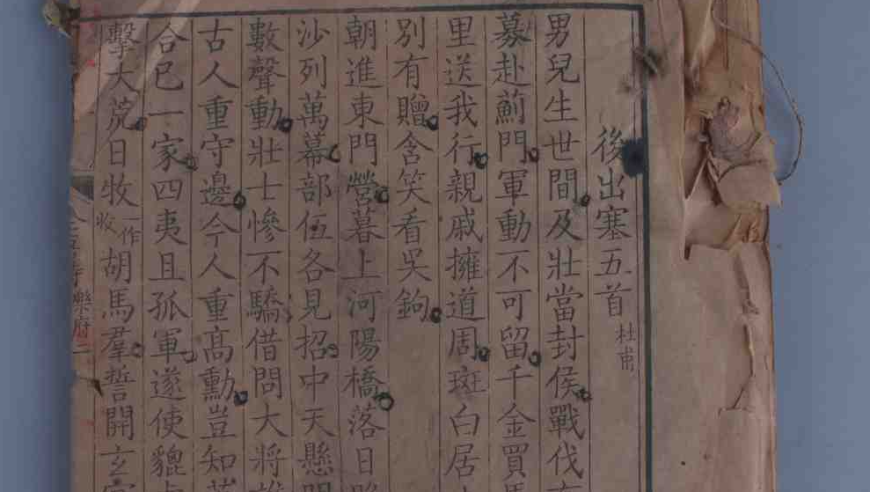 後出塞五首 杜甫
男兒生世間及壯當封侯戰伐
募赴薊門軍動不可留千金買
里送我行親戚擁道周斑白居
別有贈含笑看吳鉤
朝進東門營暮上河陽橋落日
沙列萬幕部伍各見招中天懸
數聲動壯士慘不驕借問大將
古人重守邊今人重高勳豈知
合已一家四夷且孤軍遂使貔
擊大荒日牧一作收胡馬羣誓開玄
樂府二